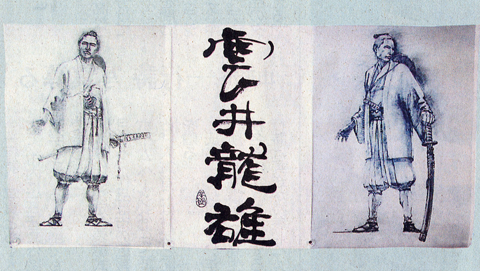 雲井龍雄